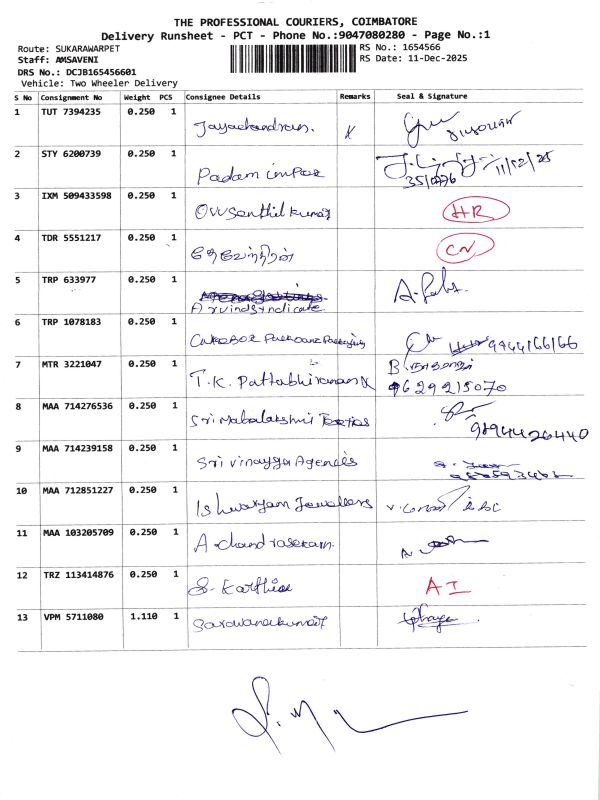 THE PROFESSIONAL COURIERS, COIMBATORE
Delivery Runsheet - PCT - Phone No.:9047080280 - Page No.:1
Route: SUKARAWARPET RS No.: 1654566
Staff: AMSAVENI RS Date: 11-Dec-2025
DRS No.: DCJB165456601
Vehicle: Two Wheeler Delivery
S No Consignment No Weight PCS Consignee Details Remarks Seal & Signature
1 TUT 7394235 0.250 1 Jayachandran.
2 STY 6200739 0.250 1 Padam 11/12/25
3 IXM 509433598 0.250 1 senthil kumar HR
4 TDR 5551217 0.250 1 CN
5 TRP 633977 0.250 1
Arvind Syndicate
6 TRP 1078183 0.250 1 9944166166
7 MTR 3221047 0.250 1 T.K. Pattabhiraman
9629215070
8 MAA 714276536 0.250 1 Sri Mahalakshmi
9894426440
9 MAA 714239158 0.250 1 Sri Vinayga Agencies
10 MAA 712851227 0.250 1 Ishwaryam Jewellers
11 MAA 103205709 0.250 1 A chandrasekaran.
12 TRZ 113414876 0.250 1 S. Karthick AI
13 VPM 5711080 1.110 1 Saravanakumar